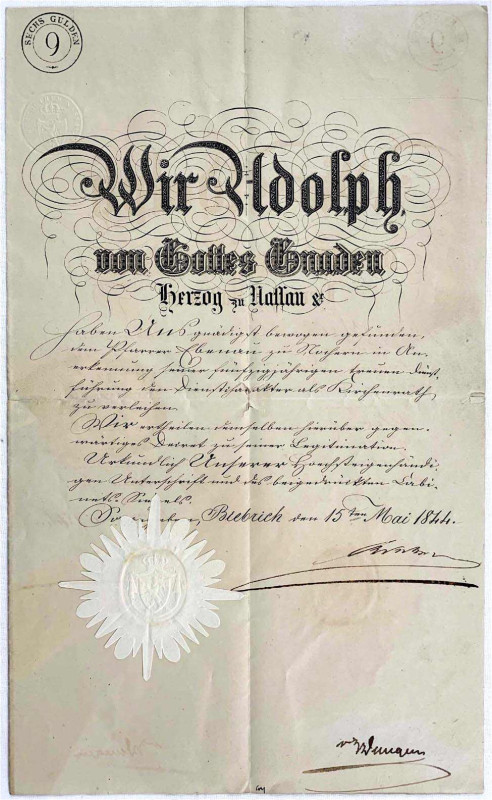 SECHS GULDEN
9
Wir Adolph,
von Gottes Gnaden
Herzog zu Nassau &c
haben Uns gnädigst bewogen gefunden,
dem Pfarrer Ebenau zu Nochern in An-
erkennung seiner fünfzigjährigen treuen Dienst-
führung den Dienstcharakter als Kirchenrath
zu verleihen.
Wir ertheilen demselben hierüber gegen-
wärtiges Decret zu seiner Legitimation.
Urkundlich Unserer Höchsteigenhändi-
gen Unterschrift und des beigedruckten Cabi-
nets-Siegels.
So gegeben, Biebrich den 15ten Mai 1844.